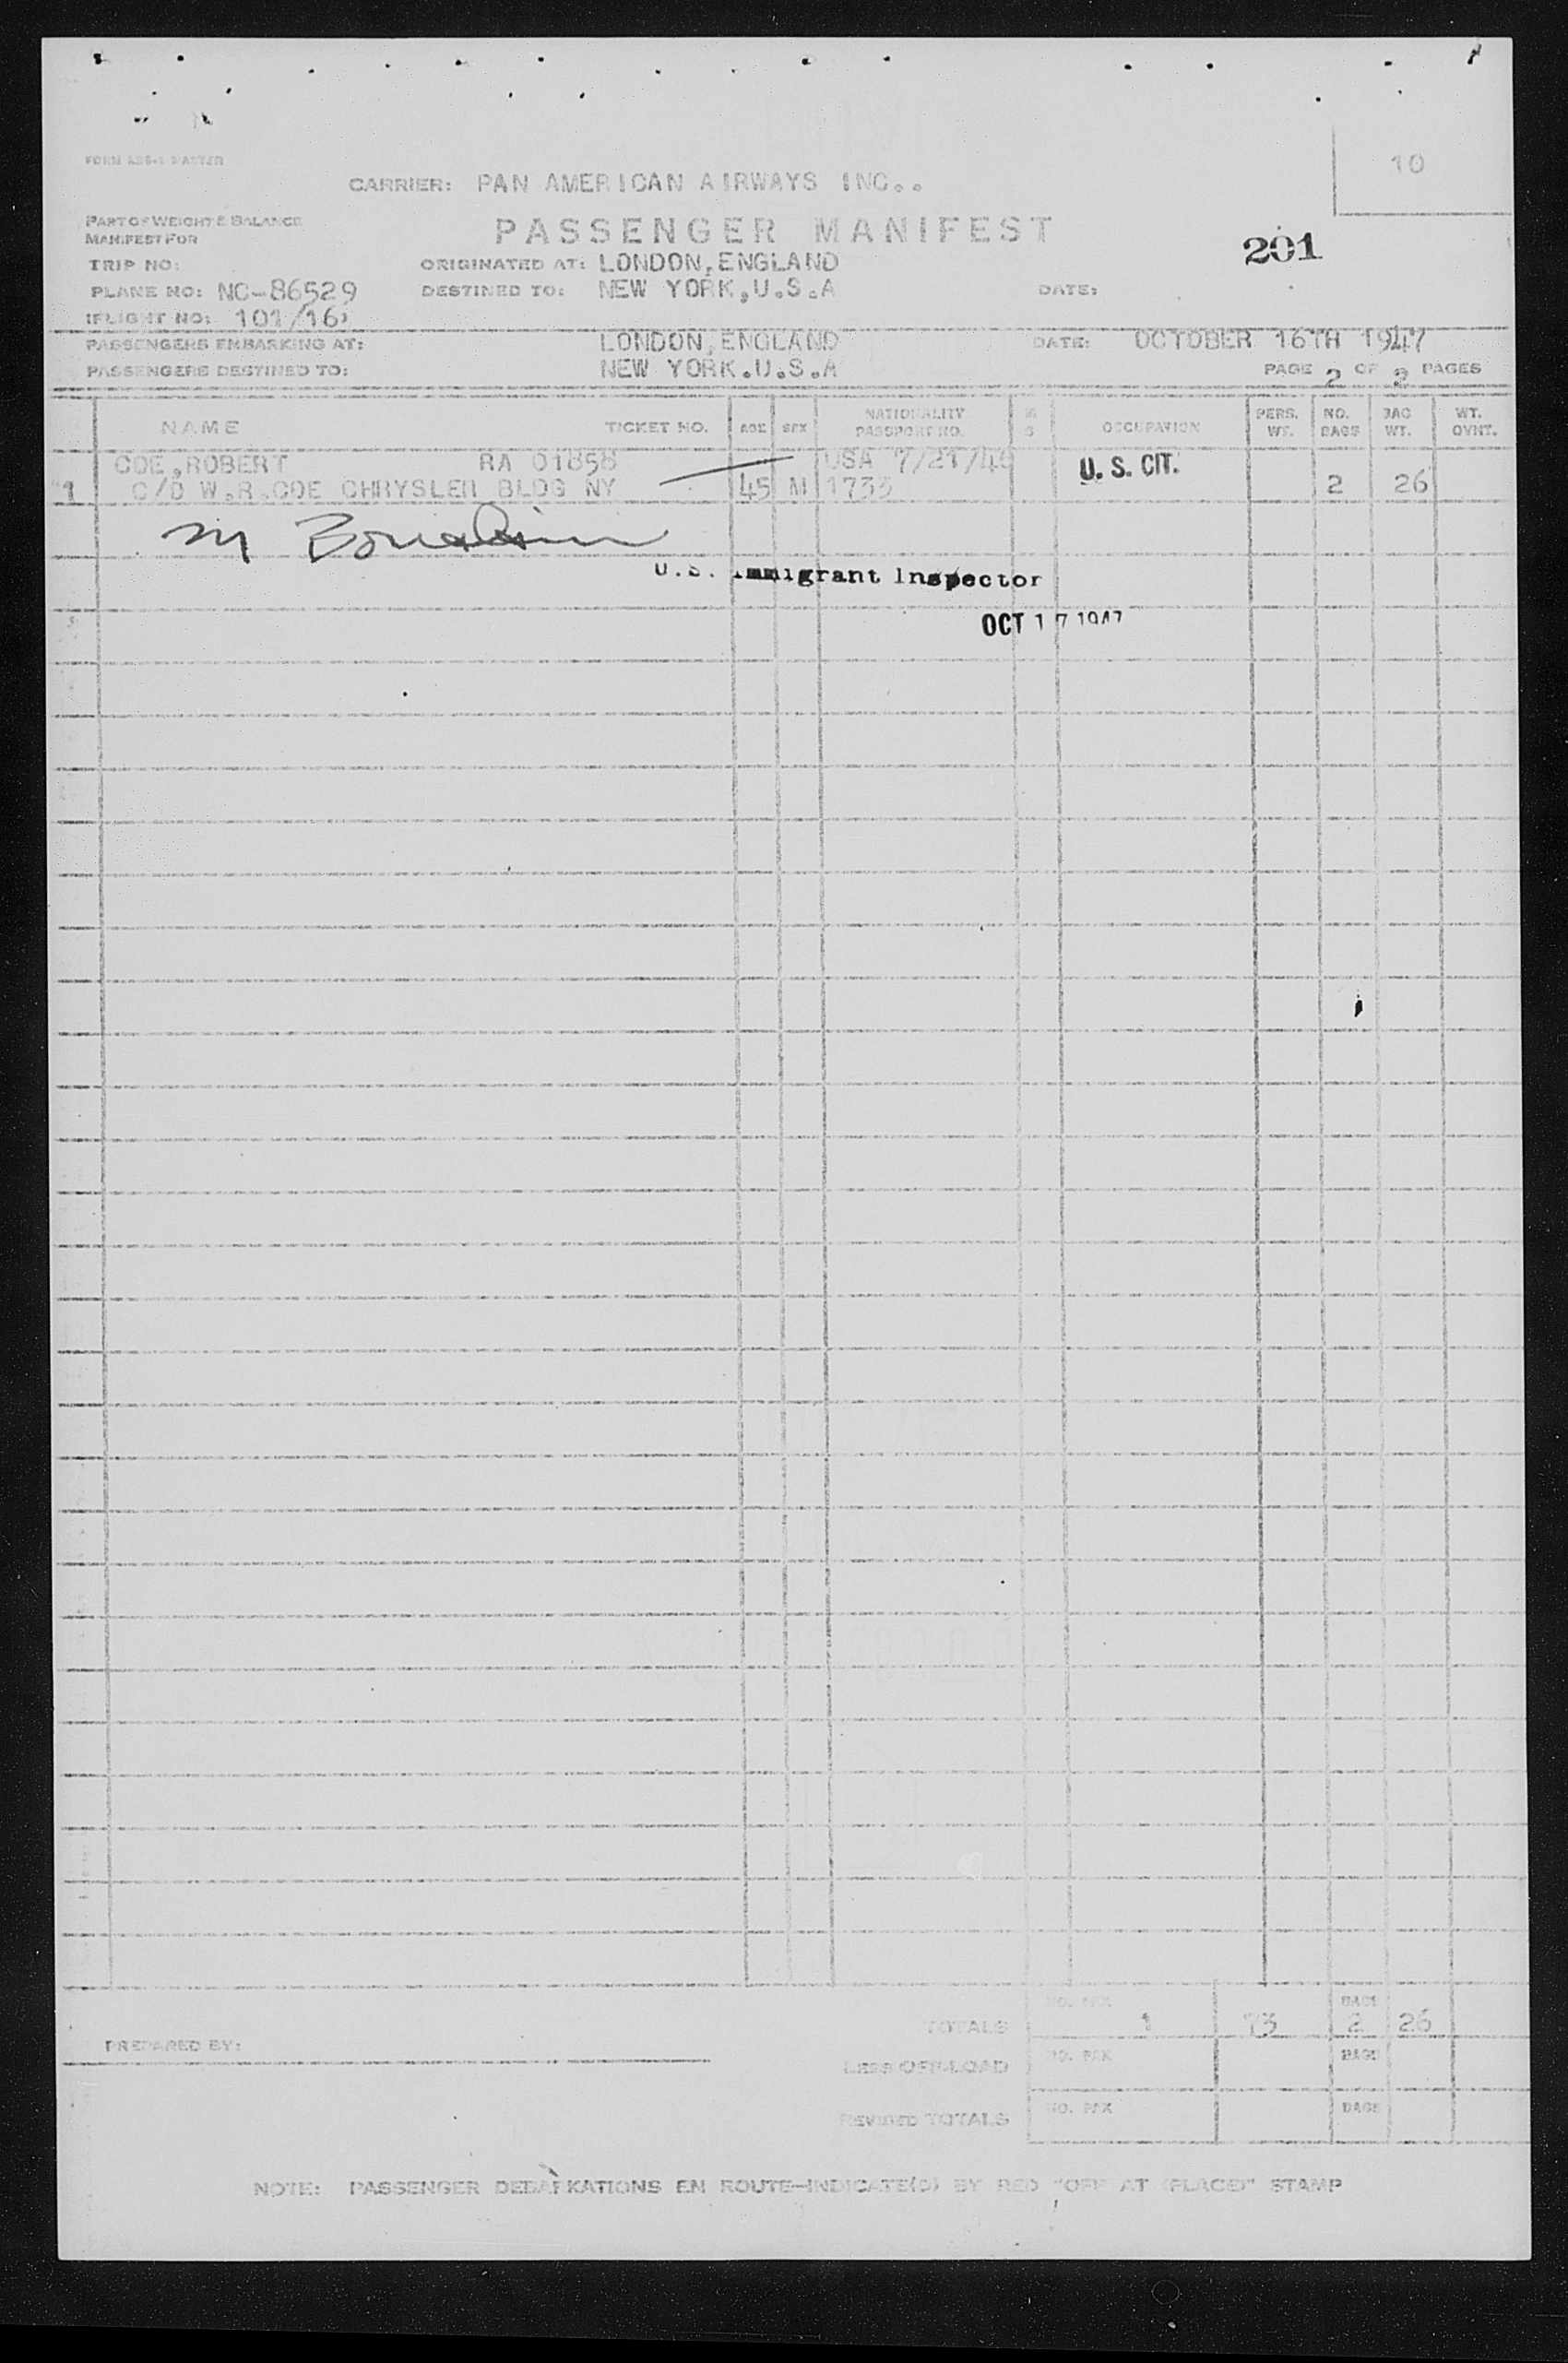 10
CARRIER: PAN AMERICAN AIRWAYS INC..
PART OF WEIGHT & BALANCE
MANIFEST FOR
PASSENGER MANIFEST
201
TRIP NO:
ORIGINATED AT: LONDON, ENGLAND
PLANE NO: NC-86529
DESTINED TO: NEW YORK, U.S.A
DATE:
FLIGHT NO: 101/16
PASSENGERS EMBARKING AT: LONDON, ENGLAND
DATE: OCTOBER 16TH 1947
PASSENGERS DESTINED TO: NEW YORK.U.S.A
PAGE 2 OF PAGES
NAME TICKET NO. AGE SEX NATIONALITY PASSPORT NO. OCCUPATION PERS. WT. NO. BAGS BAG WT. WT. OVNT.
COE, ROBERT RA 01858 USA U. S. CIT.
1 C/O W.R.COE CHRYSLER BLDG NY 45 M 1733 2 26
M
U.S. Immigrant Inspector
OCT 17 1947
NO. PAX BAGS
TOTALS 1 73 2 26
PREPARED BY:
LESS OFF-LOAD NO. PAX BAGS
REVISED TOTALS NO. PAX BAGS
NOTE: PASSENGER DEBARKATIONS EN ROUTE-INDICATE(D) BY RED "OFF AT (PLACE)" STAMP